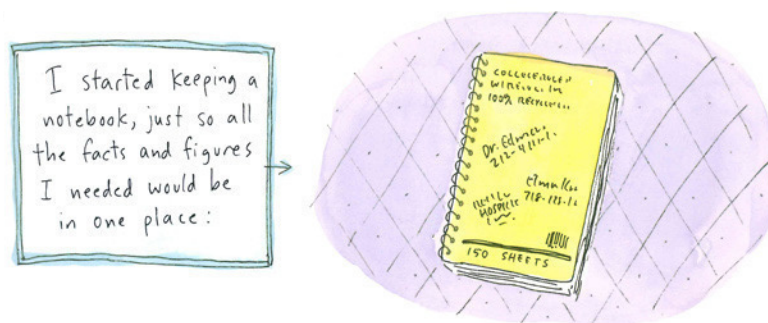 I started keeping a
notebook, just so all
the facts and figures
I needed would be
in one place:
100%
Dr.
HOSPICE
150 SHEETS